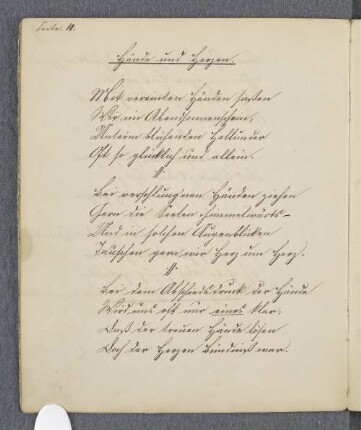 Seite. 10.
Hände und Herzen.
Mit vereinten Händen saßen
Wir im Abendsonnenschein,
Unterm blühenden Hollunder
Oft so glücklich und allein.
Bei verschlung'nen Händen ziehen
Gern die Seelen himmelwärts –
Und in solchen Augenblicken
Tauschen gern wir Herz um Herz.
Bei dem Abschiedsdruck der Hände
Wird uns oft nur eines klar,
Daß der treuen Hände lösen
Doch der Herzen Bündniß war.